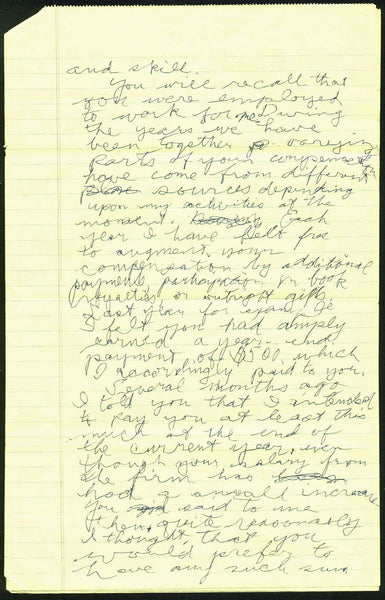 and skill.
You will recall that
you were employed
to work for me. During
the years we have
been together varying
parts of your compensation
have come from different
sources depending
upon my activities at the
moment. Each
year I have felt free
to augment your
compensation by additional
payments, participation in book
royalties, or outright gifts.
Last year for example
I felt you had amply
earned a year-end
payment of $500. which
I accordingly paid to you.
Several months ago
I told you that I intended
to pay you at least this
much at the end of
the current year, even
though your salary from
the firm has
had a small increase
You said to me
then, quite reasonably
I thought, that you
would prefer to
have any such sum